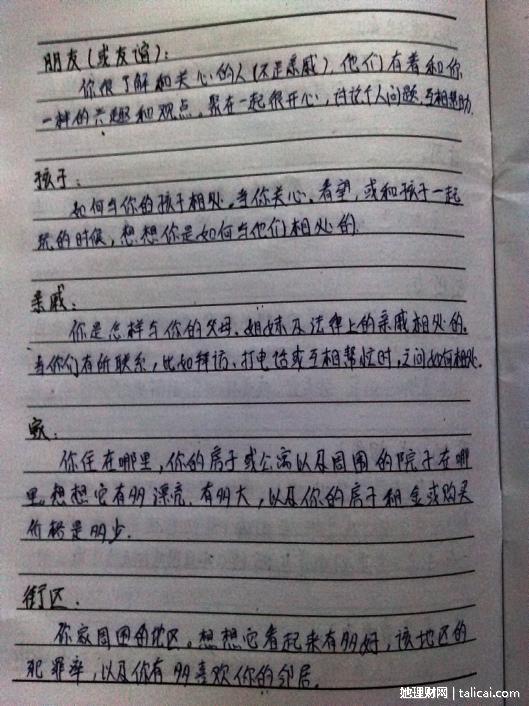 朋友(或友谊):
你很了解和关心的人(不是亲戚),他们有着和你
一样的兴趣和观点,聚在一起很开心,讨论个人问题,互相帮助.
孩子:
如何与你的孩子相处,当你关心、看望,或和孩子一起
玩的时候,想想你是如何与他们相处的.
亲戚:
你是怎样与你的父母、姐妹及法律上的亲戚相处的.
当你们有所联系,比如拜访、打电话或互相帮忙时,之间如何相处.
家:
你住在哪里,你的房子或公寓以及周围的院子在哪
里。想想它有多漂亮,有多大,以及你的房子租金或购买
价格是多少.
街区.
你家周围的地区。想想它看起来有多好,该地区的
犯罪率,以及你有多喜欢你的邻居.
她理财网 | talicai.com